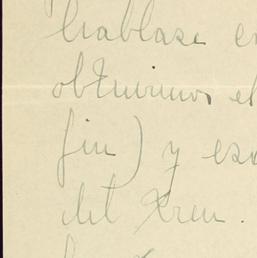 hablase en
obtuvimos el
fin) y eso
del Xren.